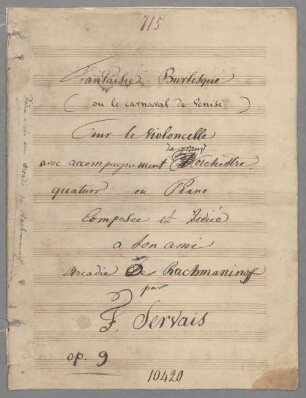 715
Fantaisie Burlesque
(ou le carnaval de Venise)
Pour le Violoncelle
de grand
avec accompagnement D'orchestre
quatuor ou Piano
Composée et Dédiée
a son ami
Arcadie De Rachmaninoff
par
F. Servais
op. 9
10420